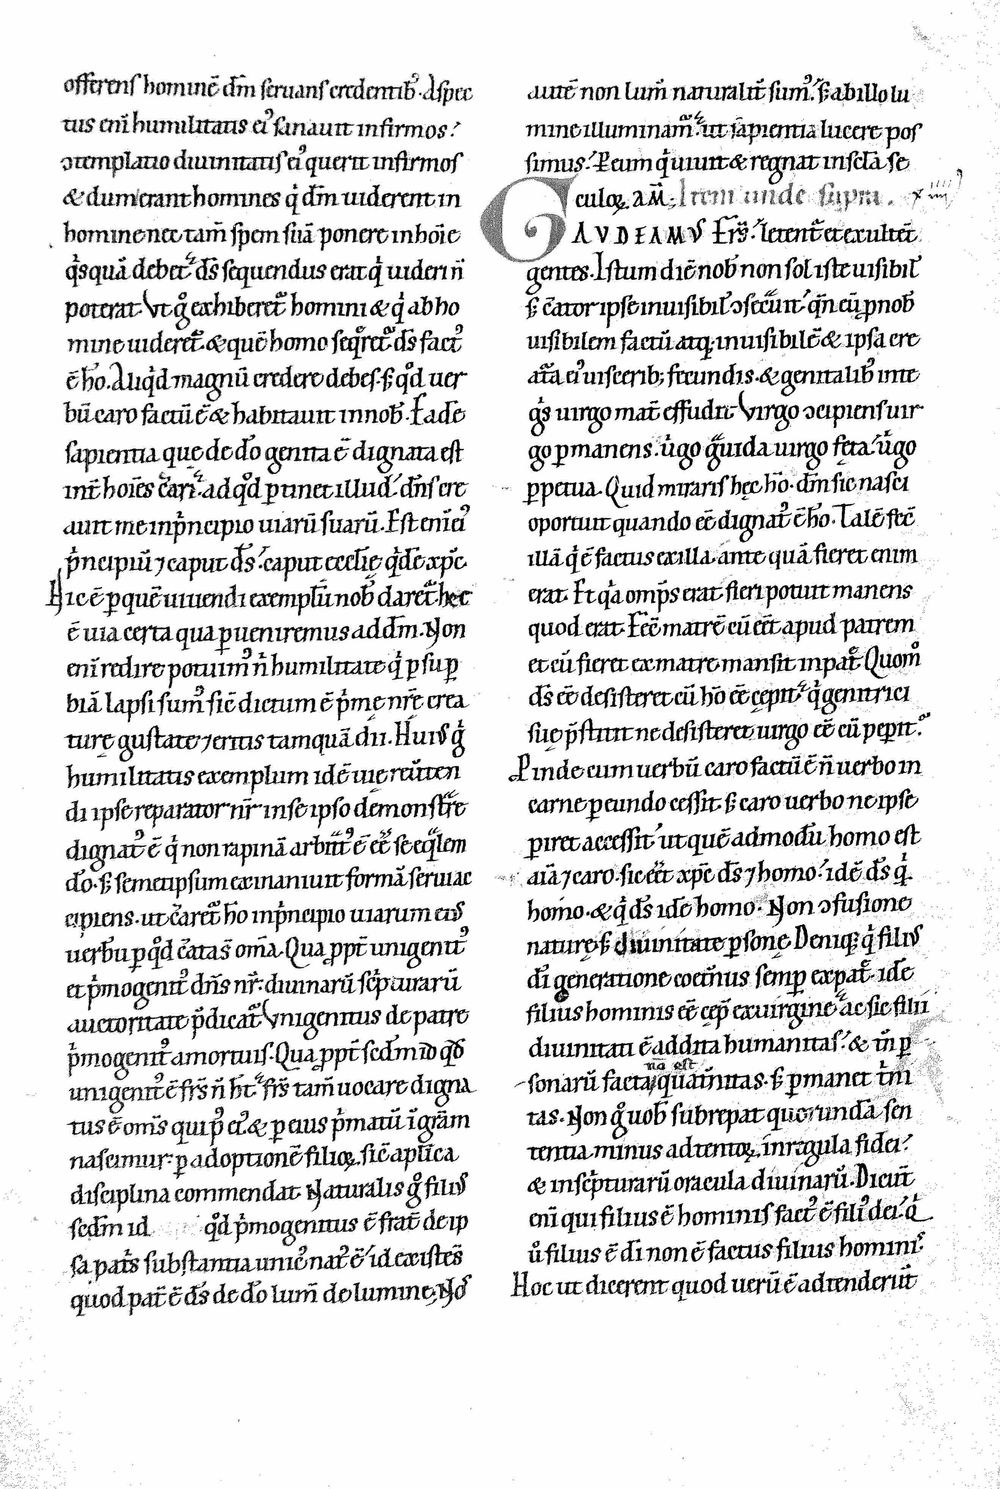 offerens hominē dm̄ seruans credentib᷒. Aspec
tus eni humilitatis ei᷒ sanauit infirmos?
ↄtemplatio diuinitatis ei᷒ querit infirmos
& dum erant homines q̇ dm̄ uiderent in
homine nec tam̄ spem suā ponere in hoīe
q̇squā debet᷒. Ds̄ sequendus erat q̇ uideri n̄
poterat. Vt ḡ exhiberet᷒ homini & q̇ ab ho
mine uideret᷒. & quē homo seq̄ret᷒ ds̄ fact᷒
ē ho̅. Aliq̇d magnū credere debes. s; q̇d uer
bū caro factū ē & habitauit in nob̄. Eadē
sapientia que de dō genita ē dignata est
int̄ hoīes c̄ari. ad q̇d ptinet illud. dn̄s cre
auit me in ṗncipio uiarū suarū. Est eni ei᷒
ṗncipiū ⁊ caput ds̄. caput ecclīe q̇dē xp̄c
Hic ē p quē uiuendi exemplū nob̄ daret᷒. hec
ē uia certa qua pueniremus ad dm̄. Non
eni redire potuim᷒ n̄ humilitate q̇ p sup
biā lapsi sum᷒ sic̄ dictum ē ṗme nr̄e crea
ture gustate ⁊ eritis tamquā dii. Hui᷒ q̇
humilitatis exemplum id ē uie reūtten
di ipse reparator nr̄ in se ipso demonstr̄re
dignat᷒ ē q̇ non rapinā arbitt᷒ ē eē se eq̄lem
dō. s; semetipsum exinaniuit formā serui ac
cipiens. ut c̄aret᷒ ho̅ in ṗncipio uiarum ei᷒
uerbū p q̇d c̄atas̄ om̄a. Qua ppt̄ unigenit᷒
et ṗmogenit᷒ dn̄s nr̄. diuinarū sc̄pturarū
auctoritate p̄dicat᷒. Vnigenitus de patre
ṗmogenit᷒ a mortuis. Qua ppt̄ scdm̄ id q̇d
unigenit᷒ ē fr̄s n̄ ht᷒. fr̄s tam̄ uocare digna
tus ē om̄s qui p᷒ ei᷒ & p eius ṗmatū ī gr̄am
nascimur. p adoptionē filioꝝ. sic̄ aplīca
disciplina commendat. Naturalis ḡ fili᷒
scdm̄ id q̇d ṗmogenitus ē frat̄ de ip
sa patr̄s substantia unic᷒ nat᷒ ē. id existēs
quod pat̄ ē ds̄ de dō lum̄ de lumine. Nos
autē non lum̄ naturalit̄ sum᷒. s; ab illo lu
mine illuminam᷒. ut sapientia lucere pos
simus. Per eum q̇ uiuit & regnat in sc̄la se
culoꝝ. am̄. Item unde supra. xiiii
GAVDEAMVS Fr̄s. letent᷒ et exultet᷒
gentes. Istum diē nob̄ non sol iste uisibil᷒
s; c̄ator ipse inuisibil᷒ ↄsec̄uit. q̄n eū p nob̄
uisibilem factū atq; inuisibilē & ipsa cre
ata ei᷒ uisceribꝫ fecundis. & genitalib᷒ inte
g̊s uirgo mat̄ effudit. Virgo ↄcipiens uir
go pmanens. ūgo g̃uida uirgo feta. ūgo
ppetua. Quid miraris hec ho̅. dm̄ sic nasci
oportuit quando eē dignat᷒ ē ho̅. Talē fec̄
illā q̇ ē factus ex illa. ante quā fieret enim
erat. Et q̇a omp̄s erat fieri potuit manens
quod erat. Fec̄ matrē cū eēt apud patrem
et cū fieret ex matre mansit in pat᷒. Quom̊
ds̄ eē desisteret cū ho̅ eē cepit᷒. q̇ genitrici
sue p̄stitit ne desisteret uirgo eē cū pepit?
Pinde cum uerbū caro factū ē n̄ uerbo in
carne pereundo cessit. s; caro uerbo ne ipse
piret accessit. ut quē admodū homo est
aīa ⁊ caro. sic eēt xp̄c ds̄ ⁊ homo. idē ds̄ q̇
homo. & q̇ ds̄ idē homo. Non ↄfusione
nature. s; diuinitate psone. Deniq; q̇ fili᷒
dī generatione coet̄nus semp ex pat᷒. idē
filius hominis eē cep̄ ex uirgine. ac sic filii
diuinitati ē addita humanitas. & tn̄ p
sonarū facta nō est quat̄nitas. s; pmanet t̄ni
tas. Non ḡ uob̄ subrepat quorundā sen
tentia minus adtentoꝝ. in regula fidei?
& in sc̄pturarū oracula diuinarū. Dicut̄
eni qui filius ē hominis fact᷒ ē fili᷒ dei. Q̇
ū filius ē dī non ē factus filius homini᷒.
Hoc ut dicerent quod uerū ē adtenderūt